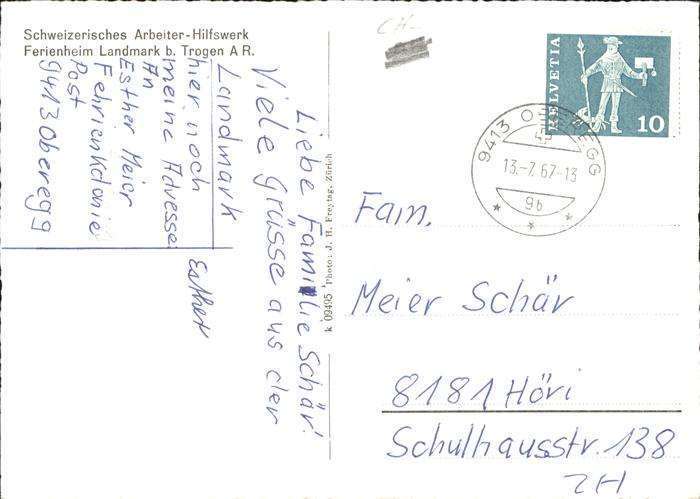 Schweizerisches Arbeiter-Hilfswerk
Ferienheim Landmark b. Trogen A R.
Liebe Familie Schär
Viele Grüsse aus der
Landmark
Esther
hier noch
meine Adresse
An
Esther Meier
Fehrienkolonie
Post
9413 Oberegg
k 09495 Photo: J. H. Freytag, Zürich
CH-
HELVETIA
10
9413 OBEREGG
13.-7.67-13
9b
Fam.
Meier Schär
8181 Höri
Schulhausstr. 138
ZH